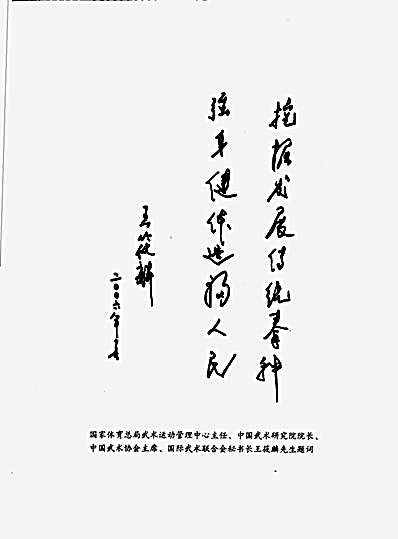 挖掘发展传统拳种
强身健体造福人民
王筱麟
二〇〇六年
国家体育总局武术运动管理中心主任、中国武术研究院院长、
中国武术协会主席、国际武术联合会秘书长王筱麟先生题词